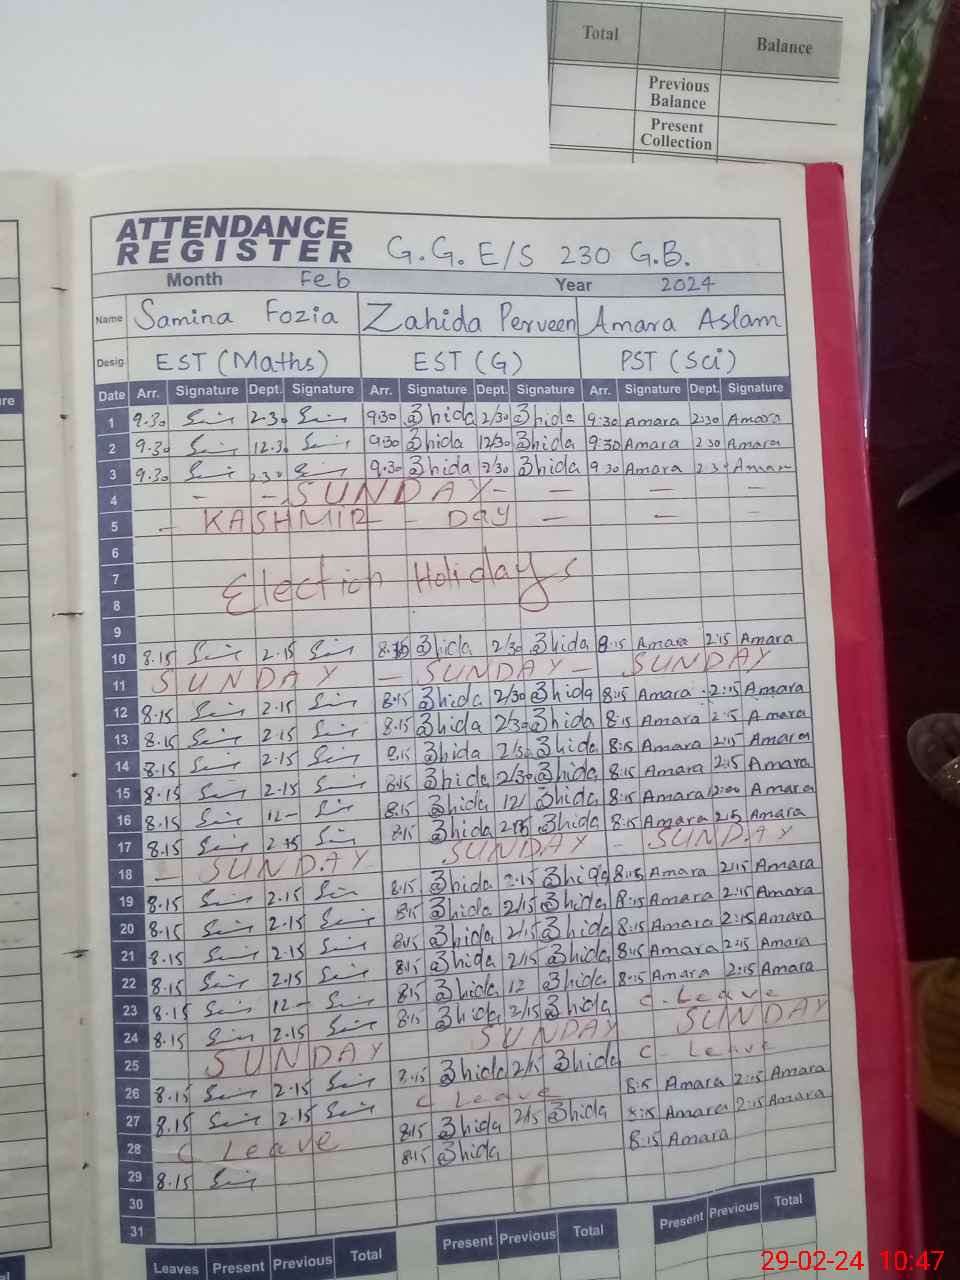 Total Balance
Previous Balance
Present Collection
ATTENDANCE REGISTER G.G. E/S 230 G.B.
Month Feb Year 2024
Name Samina Fozia Zahida Perveen Amara Aslam
Desig. EST (Maths) EST (G) PST (Sci)
Date Arr. Signature Dept. Signature Arr. Signature Dept. Signature Arr. Signature Dept. Signature
1 9.30 2.30 9.30 Zhida 2/30 Zhida 9:30 Amara 2:30 Amara
2 9.30 12.30 9.30 Zhida 12/30 Zhida 9:30 Amara 2 30 Amara
3 9.30 2.30 9.30 Zhida 2/30 Zhida 9 30 Amara Amara
4 - - SUNDAY - - - -
5 - KASHMIR - - DAY - - -
6
7 Election Holidays
8
9
10 8.15 2.15 Zhida 2/30 Zhida 8:15 Amara 2:15 Amara
11 SUNDAY - SUNDAY - SUNDAY
12 8.15 2.15 8.15 Zhida 2/30 Zhida 8:15 Amara 2:15 Amara
13 8.15 2.15 8.15 Zhida 2/30 Zhida 8:15 Amara 2:15 Amara
14 8.15 2.15 8.15 Zhida 2/30 Zhida 8:15 Amara 2:15 Amara
15 8.15 2.15 8.15 Zhida 2/30 Zhida 8:15 Amara 2:15 Amara
16 8.15 12- 8.15 Zhida 12/ Zhida 8:15 Amara Amara
17 8.15 2.15 8.15 Zhida 2.15 Zhida 8:15 Amara 2:15 Amara
18 - SUNDAY SUNDAY - SUNDAY
19 8.15 2.15 8.15 Zhida 2.15 Zhida 8:15 Amara 2:15 Amara
20 8.15 2.15 8.15 Zhida 2/15 Zhida 8:15 Amara 2:15 Amara
21 8.15 2.15 8.15 Zhida 2/15 Zhida 8:15 Amara 2:15 Amara
22 8.15 2.15 8.15 Zhida 2/15 Zhida 8:15 Amara 2:15 Amara
23 8.15 12- 8.15 Zhida 12 Zhida 8:15 Amara 2:15 Amara
24 8.15 2.15 8.15 Zhida 2/15 Zhida C. Leave
25 SUNDAY SUNDAY SUNDAY
26 8.15 2.15 8.15 Zhida 2/15 Zhida C- Leave
27 8.15 2.15 C Leave 8:15 Amara 2:15 Amara
28 C Leave 8.15 Zhida 2/15 Zhida 8:15 Amara 2:15 Amara
29 8.15 8.15 Zhida 8:15 Amara
30
31
Leaves Present Previous Total Present Previous Total Present Previous Total
29-02-24 10:47